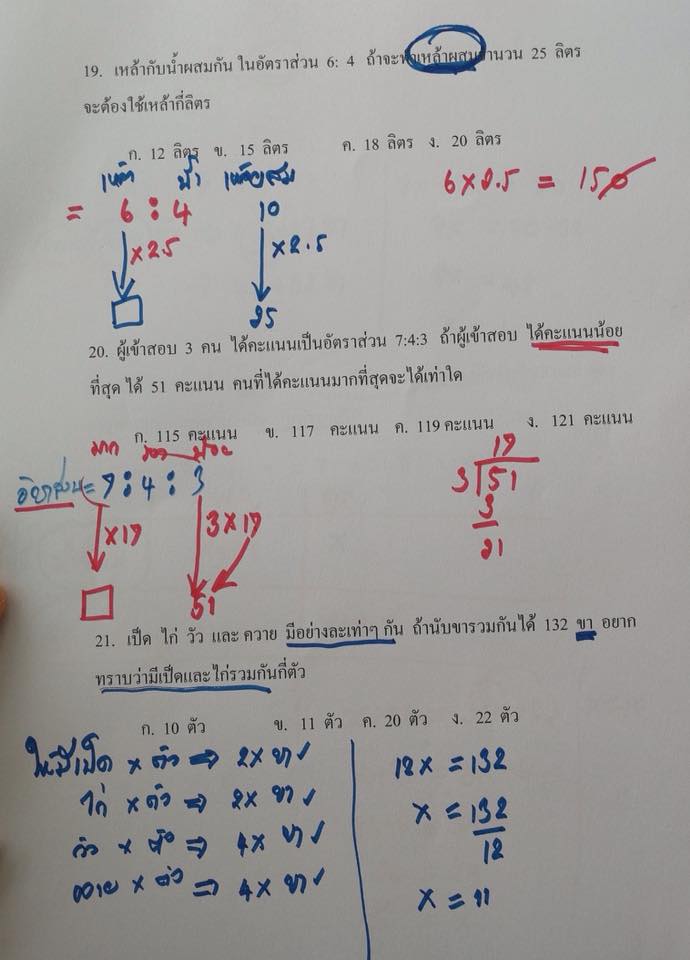 19. เหล้ากับน้ำผสมกัน ในอัตราส่วน 6: 4 ถ้าจะ เหล้าผสมจำนวน 25 ลิตร
จะต้องใช้เหล้ากี่ลิตร
ก. 12 ลิตร ข. 15 ลิตร ค. 18 ลิตร ง. 20 ลิตร
เหล้า น้ำ เหล้าผสม
6 x 2.5 = 15
= 6 : 4 10
x 2.5 x 2.5
25
20. ผู้เข้าสอบ 3 คน ได้คะแนนเป็นอัตราส่วน 7:4:3 ถ้าผู้เข้าสอบ ได้คะแนนน้อย
ที่สุด ได้ 51 คะแนน คนที่ได้คะแนนมากที่สุดจะได้เท่าใด
ก. 115 คะแนน ข. 117 คะแนน ค. 119 คะแนน ง. 121 คะแนน
มาก รอง น้อย
17
อัตราส่วน = 7 : 4 : 3
3 51
3
x 17 3 x 17
21
51
21. เป็ด ไก่ วัว และ ควาย มีอย่างละเท่าๆ กัน ถ้านับขารวมกันได้ 132 ขา อยาก
ทราบว่ามีเป็ดและไก่รวมกันกี่ตัว
ก. 10 ตัว ข. 11 ตัว ค. 20 ตัว ง. 22 ตัว
ให้มีเป็ด x ตัว ⇒ 2x ขา
ไก่ x ตัว ⇒ 2x ขา
วัว x ตัว ⇒ 4x ขา
ควาย x ตัว ⇒ 4x ขา
12x = 132
x = 132
12
x = 11